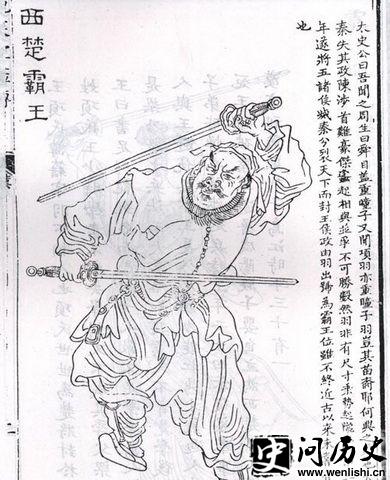 西楚霸王
太史公曰吾聞之周生曰舜目蓋重瞳子又聞項羽亦重瞳子羽豈其苗裔耶何興之
秦失其政陳涉首難豪傑蠭起相與並爭不可勝數然羽非有尺寸乘勢起隴
年遂將五諸侯滅秦分裂天下而封王侯政由羽出號爲霸王位雖不終近古以來未
也
问历史
www.wenlishi.cn